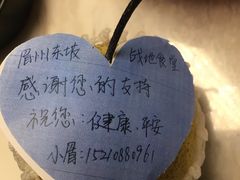 眉州东坡 战地食堂
感谢您的支持
祝您：健康、平安
小眉：15210880961